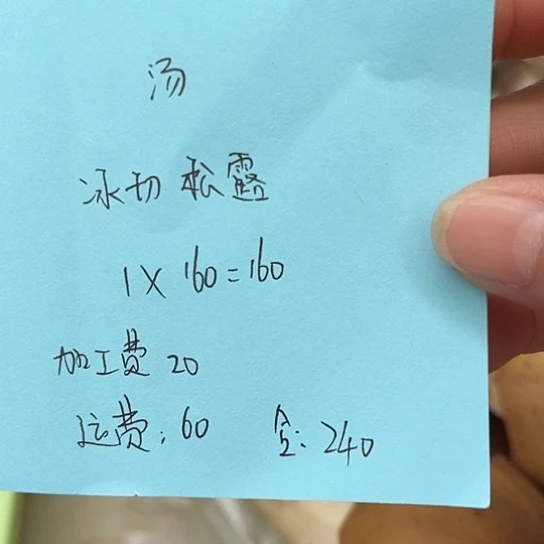 汤
冰切 松露
1×160=160
加工费 20
运费:60 仝:240